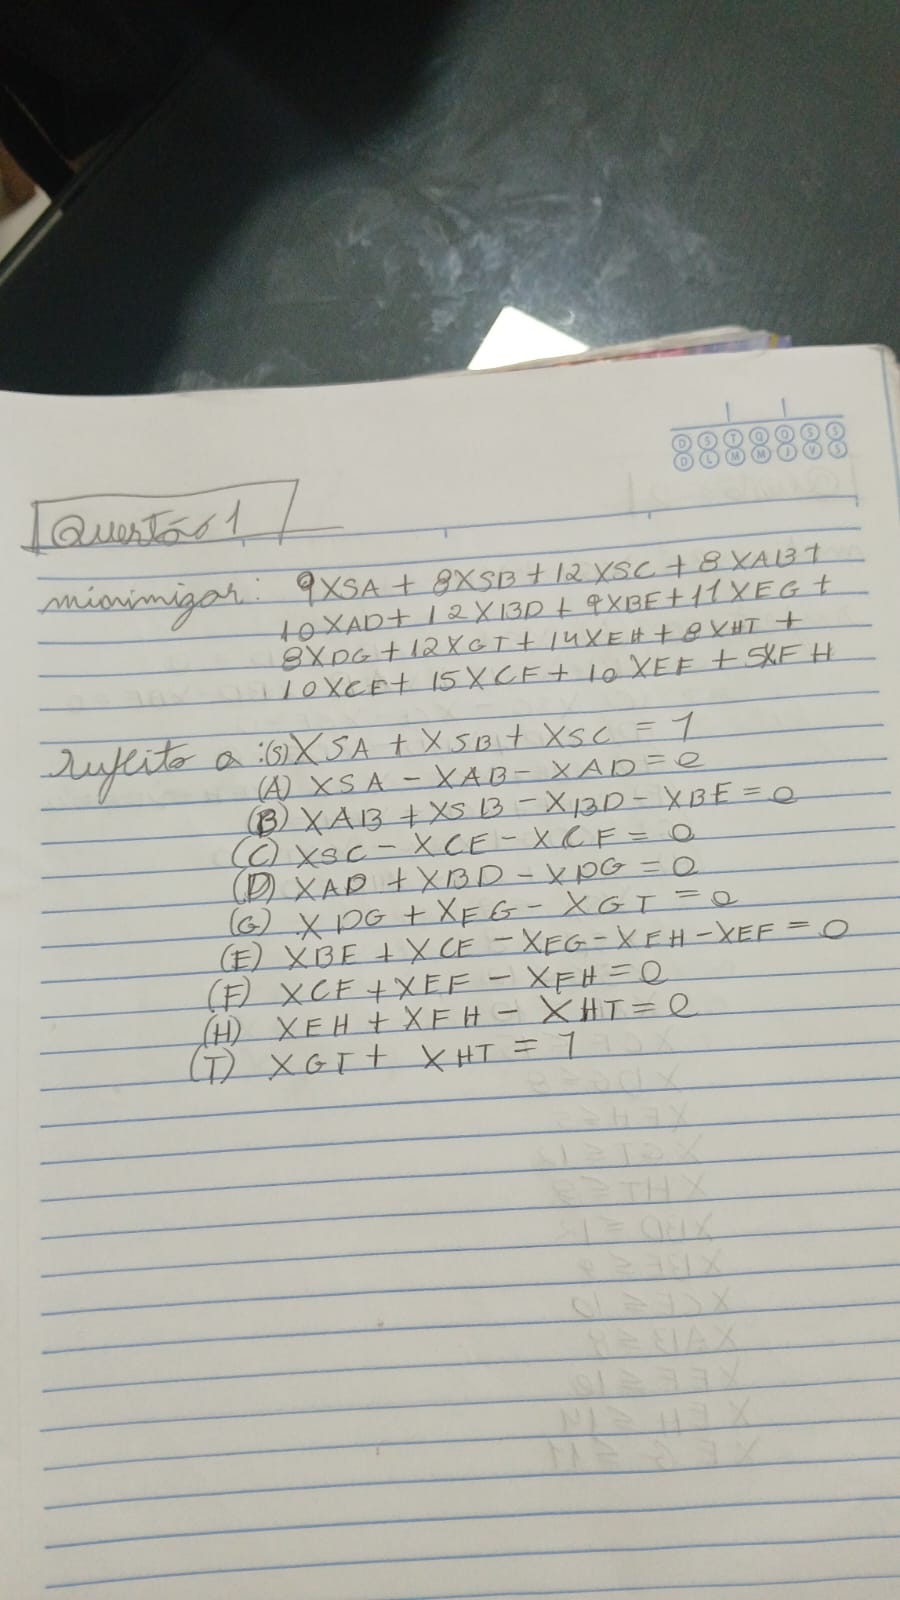 D S T Q Q S S
D L M M J V S
Questão 1
minimizar: 9XSA + 8XSB + 12XSC + 8XAB +
10XAD + 12XBD + 9XBE + 11XEG +
8XDG + 12XGT + 14XEH + 8XHT +
10XCE + 15XCF + 10XEF + 5XFH
sujeito a: (S) XSA + XSB + XSC = 1
(A) XSA - XAB - XAD = 0
(B) XAB + XSB - XBD - XBE = 0
(C) XSC - XCE - XCF = 0
(D) XAD + XBD - XDG = 0
(G) XDG + XEG - XGT = 0
(E) XBE + XCE - XEG - XEH - XEF = 0
(F) XCF + XEF - XFH = 0
(H) XEH + XFH - XHT = 0
(T) XGT + XHT = 1